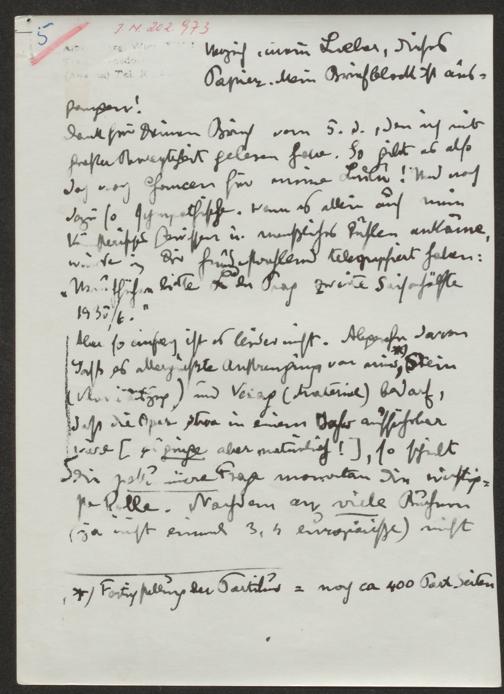 5 I.N. 202.973
Verzeih, mein Lieber, dieses
Papier. Mein Briefblock ist aus-
gegangen!
Dank für Deinen Brief vom 5. d., den ich mit
größter gelesen habe. So gibt es also
doch noch Chancen für meine "Lulu"! Und noch
dazu so sympathische. Wenn es allein auf mein
künstlerisches Gewissen u. menschliches Fühlen ankäme,
würde ich Dir telegraphiert haben:
" bitte Prag zweite Saisonhälfte
1935/6."
Aber so einfach ist es leider nicht. Abgesehen davon
daß es allergrößte Anstrengung von mir, *) Stein
( ) und Verlag (Material) bedarf,
daß die Oper etwa in einem Jahr aufführbar
wäre [ ginge aber natürlich!], so spielt
die Frage momentan die wichtig-
ste Rolle. Nachdem an viele Bühnen
(ja nicht einmal 3, 4 europäische) nicht
*) Fertigstellung der Partitur = noch ca 400 Part. Seiten